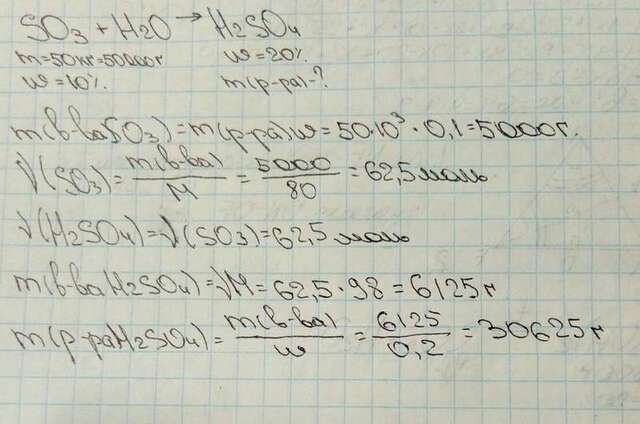 SO3 + H2O → H2SO4
m=50кг=50000г w=20%
w=10% m(р-ра)-?
m(в-ва SO3)=m(р-ра)w=50·10³·0,1=5000г.
ν(SO3)=m(в-ва)/M=5000/80=62,5моль
ν(H2SO4)=ν(SO3)=62,5моль
m(в-ва H2SO4)=νM=62,5·98=6125г
m(р-ра H2SO4)=m(в-ва)/w=6125/0,2=30625г